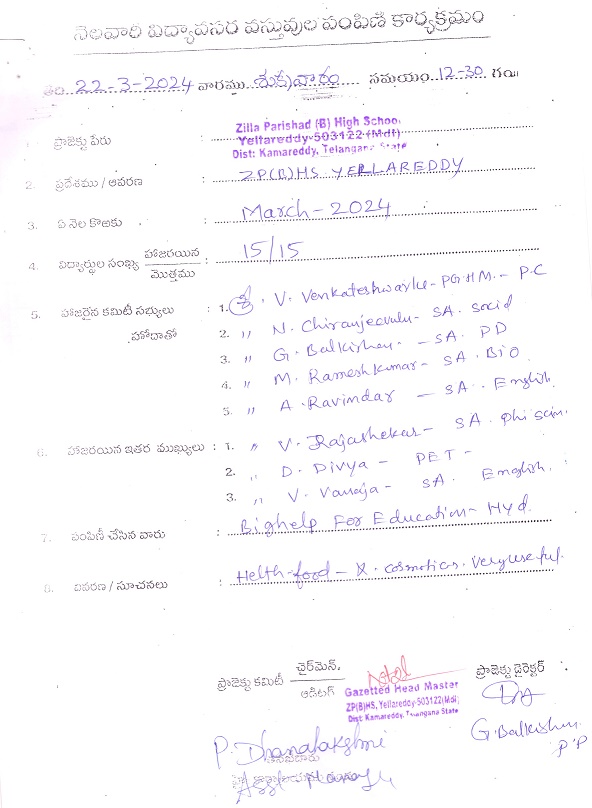 నెలవారీ విద్యావసర వస్తువుల పంపిణీ కార్యక్రమం
తేది 22-3-2024 వారము శుక్రవారం సమయం 12-30 గం॥
1. ప్రాజెక్టు పేరు : Zilla Parishad (B) High School
Yellareddy-503122 (Mdl)
Dist: Kamareddy, Telangana State
2. ప్రదేశము / ఆవరణ : ZP(B)HS YELLAREDDY
3. ఏ నెల కొఱకు : March - 2024
4. విద్యార్థుల సంఖ్య హాజరయిన / మొత్తము : 15/15
5. హాజరైన కమిటీ సభ్యులు : 1. V. Venkateshwarlu - PGHM. - P.C
హోదాతో 2. " N. Chiranjeevulu - SA. Social
3. " G. Balkishan - SA. PD
4. " M. Ramesh Kumar - SA. BiO
5. " A. Ravindar - SA. English
6. హాజరయిన ఇతర ముఖ్యులు : 1. " V. Rajashekar - SA. Phi scien.
2. " D. Divya - PET -
3. " V. Vanaja - SA. English.
7. పంపిణీ చేసిన వారు : Bighelp For Education - Hyd.
8. వివరణ / సూచనలు : Helth-food - & cosmotics. very useful.
ప్రాజెక్టు కమిటీ ఛైర్‌మెన్. / ఆడిటర్
ప్రాజెక్టు డైరెక్టర్
Gazetted Head Master
ZP(B)HS, Yellareddy-503122(Mdl)
Dist: Kamareddy, Telangana State
G. Balkishan
P.P
P. Dhanalakshmi